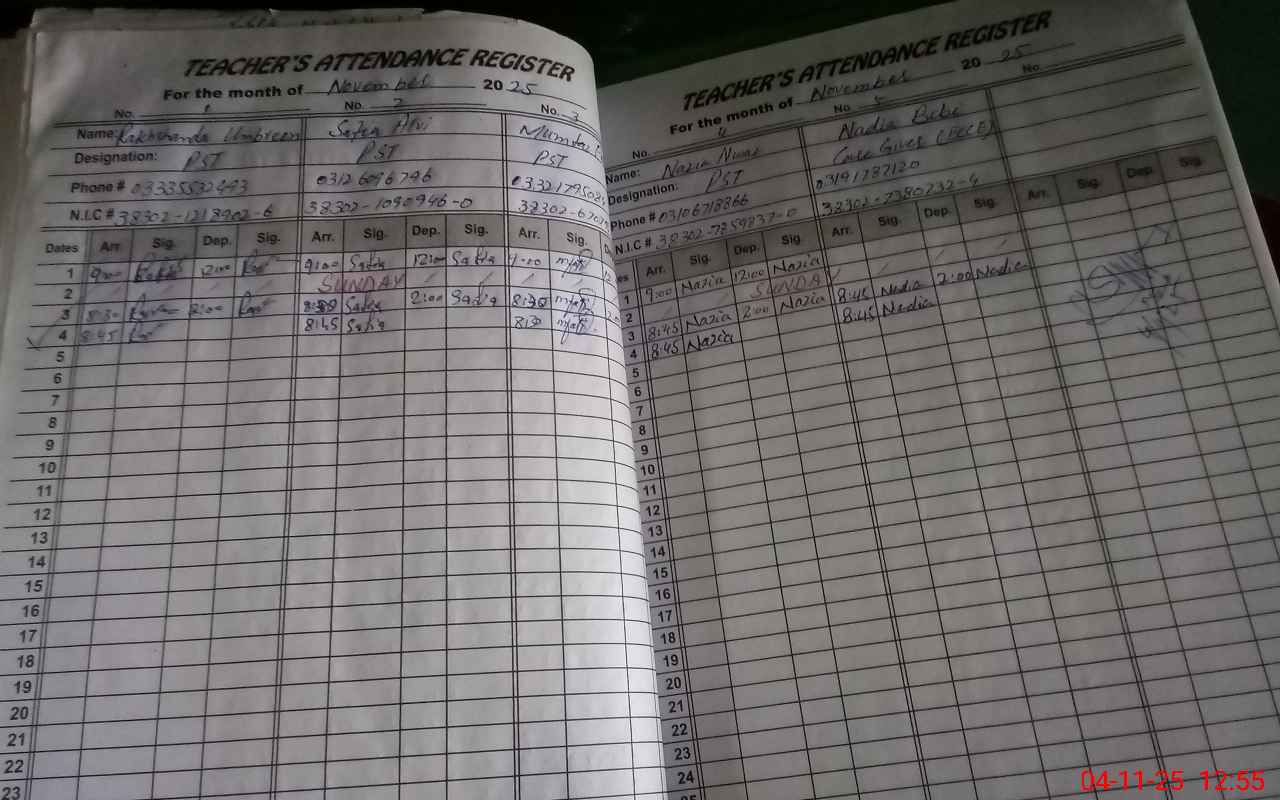 TEACHER'S ATTENDANCE REGISTER
For the month of November 2025
No. 1 No. 2 No. 3
Name: Umbreen Safia Alvi Mumtaz
Designation: PST PST PST
Phone # 03335532493 03126096796
N.I.C # 38302-1218902-6 38302-1090946-0
Dates Arr. Sig. Dep. Sig. Arr. Sig. Dep. Sig. Arr. Sig.
1 9:00 12:00 9:00 Safia 12:00 Safia 9:00
2 SUNDAY
3 8:30 2:00 Safia 2:00 Safia 8:30
4 8:45 8:45 Safia 8:30
5
6
7
8
9
10
11
12
13
14
15
16
17
18
19
20
21
22
23
TEACHER'S ATTENDANCE REGISTER
For the month of November 2025
No. 4 No. 5 No.
Name: Nazia Niwaz Nadia Bibi
Designation: PST Care Giver (ECCE)
Phone # 03106718866 03191787120
N.I.C # 38302-7359837-0 38302-7380732-4
Arr. Sig. Dep. Sig. Arr. Sig. Dep. Sig. Arr. Sig. Dep. Sig.
1 9:00 Nazia 12:00 Nazia
2 SUNDA
3 8:45 Nazia 2:00 Nazia 8:45 Nadia 2:00 Nadia
4 8:45 Nazia 8:45 Nadia
5
6
7
8
9
10
11
12
13
14
15
16
17
18
19
20
21
22
23
24
04-11-25 12:55